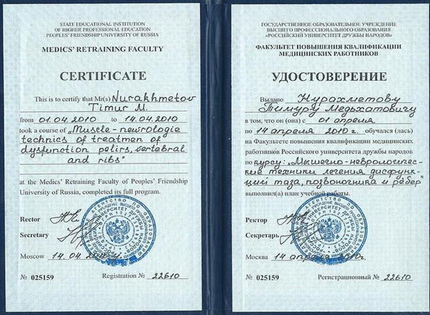 STATE EDUCATIONAL INSTITUTION
OF HIGHER PROFESSIONAL EDUCATION
PEOPLES' FRIENDSHIP UNIVERSITY OF RUSSIA
MEDICS' RETRAINING FACULTY
CERTIFICATE
This is to certify that Mr(s) Nurakhmetov
Timur M.
from 01.04.2010 to 14.04.2010
took a course of „Muscle-neurologic
technics of treatmen of
dysfunction pelirs, vertebral
and ribs"
at the Medics' Retraining Faculty of Peoples' Friendship
University of Russia, completed its full program.
Rector
Secretary
Moscow 14.04.2010
№ 025159 Registration № 22610
ГОСУДАРСТВЕННОЕ ОБРАЗОВАТЕЛЬНОЕ УЧРЕЖДЕНИЕ
ВЫСШЕГО ПРОФЕССИОНАЛЬНОГО ОБРАЗОВАНИЯ
«РОССИЙСКИЙ УНИВЕРСИТЕТ ДРУЖБЫ НАРОДОВ»
ФАКУЛЬТЕТ ПОВЫШЕНИЯ КВАЛИФИКАЦИИ
МЕДИЦИНСКИХ РАБОТНИКОВ
УДОСТОВЕРЕНИЕ
Выдано Нурахметову
Тимуру Медхатовичу
в том, что он (она) с 01 апреля
по 14 апреля 2010 г. обучался (лась)
на Факультете повышения квалификации медицинских
работников Российского университета дружбы народов
по курсу „Мышечно-неврологичес-
кие техники лечения дисфунк-
ций таза, позвоночника и ребер"
и выполнил(а) план учебной работы.
Ректор
Секретарь
Москва 14 апреля 2010г.
№ 025159 Регистрационный № 22610